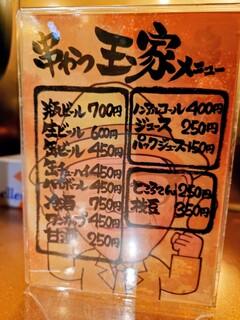 串かつ玉家メニュー
瓶ビール 700円
生ビール 600円
缶ビール 450円
缶チューハイ 450円
ハイボール 450円
冷酒 750円
ワンカップ 450円
甘酒 250円
ノンアルコール 400円
ジュース 250円
パックジュース 150円
ところてん 250円
枝豆 350円